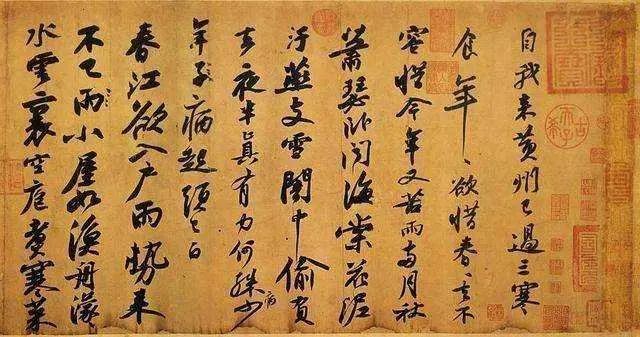 自我來黃州已過三寒
食年〻欲惜春〻去不
容惜今年又苦雨兩月秋
蕭瑟卧聞海棠花泥
汙燕支雪闇中偷負
去夜半真有力何殊病少
年子病起頭已白
春江欲入戶雨勢來
不已雨小屋如漁舟濛〻
水雲裏空庖煮寒菜
古希天子